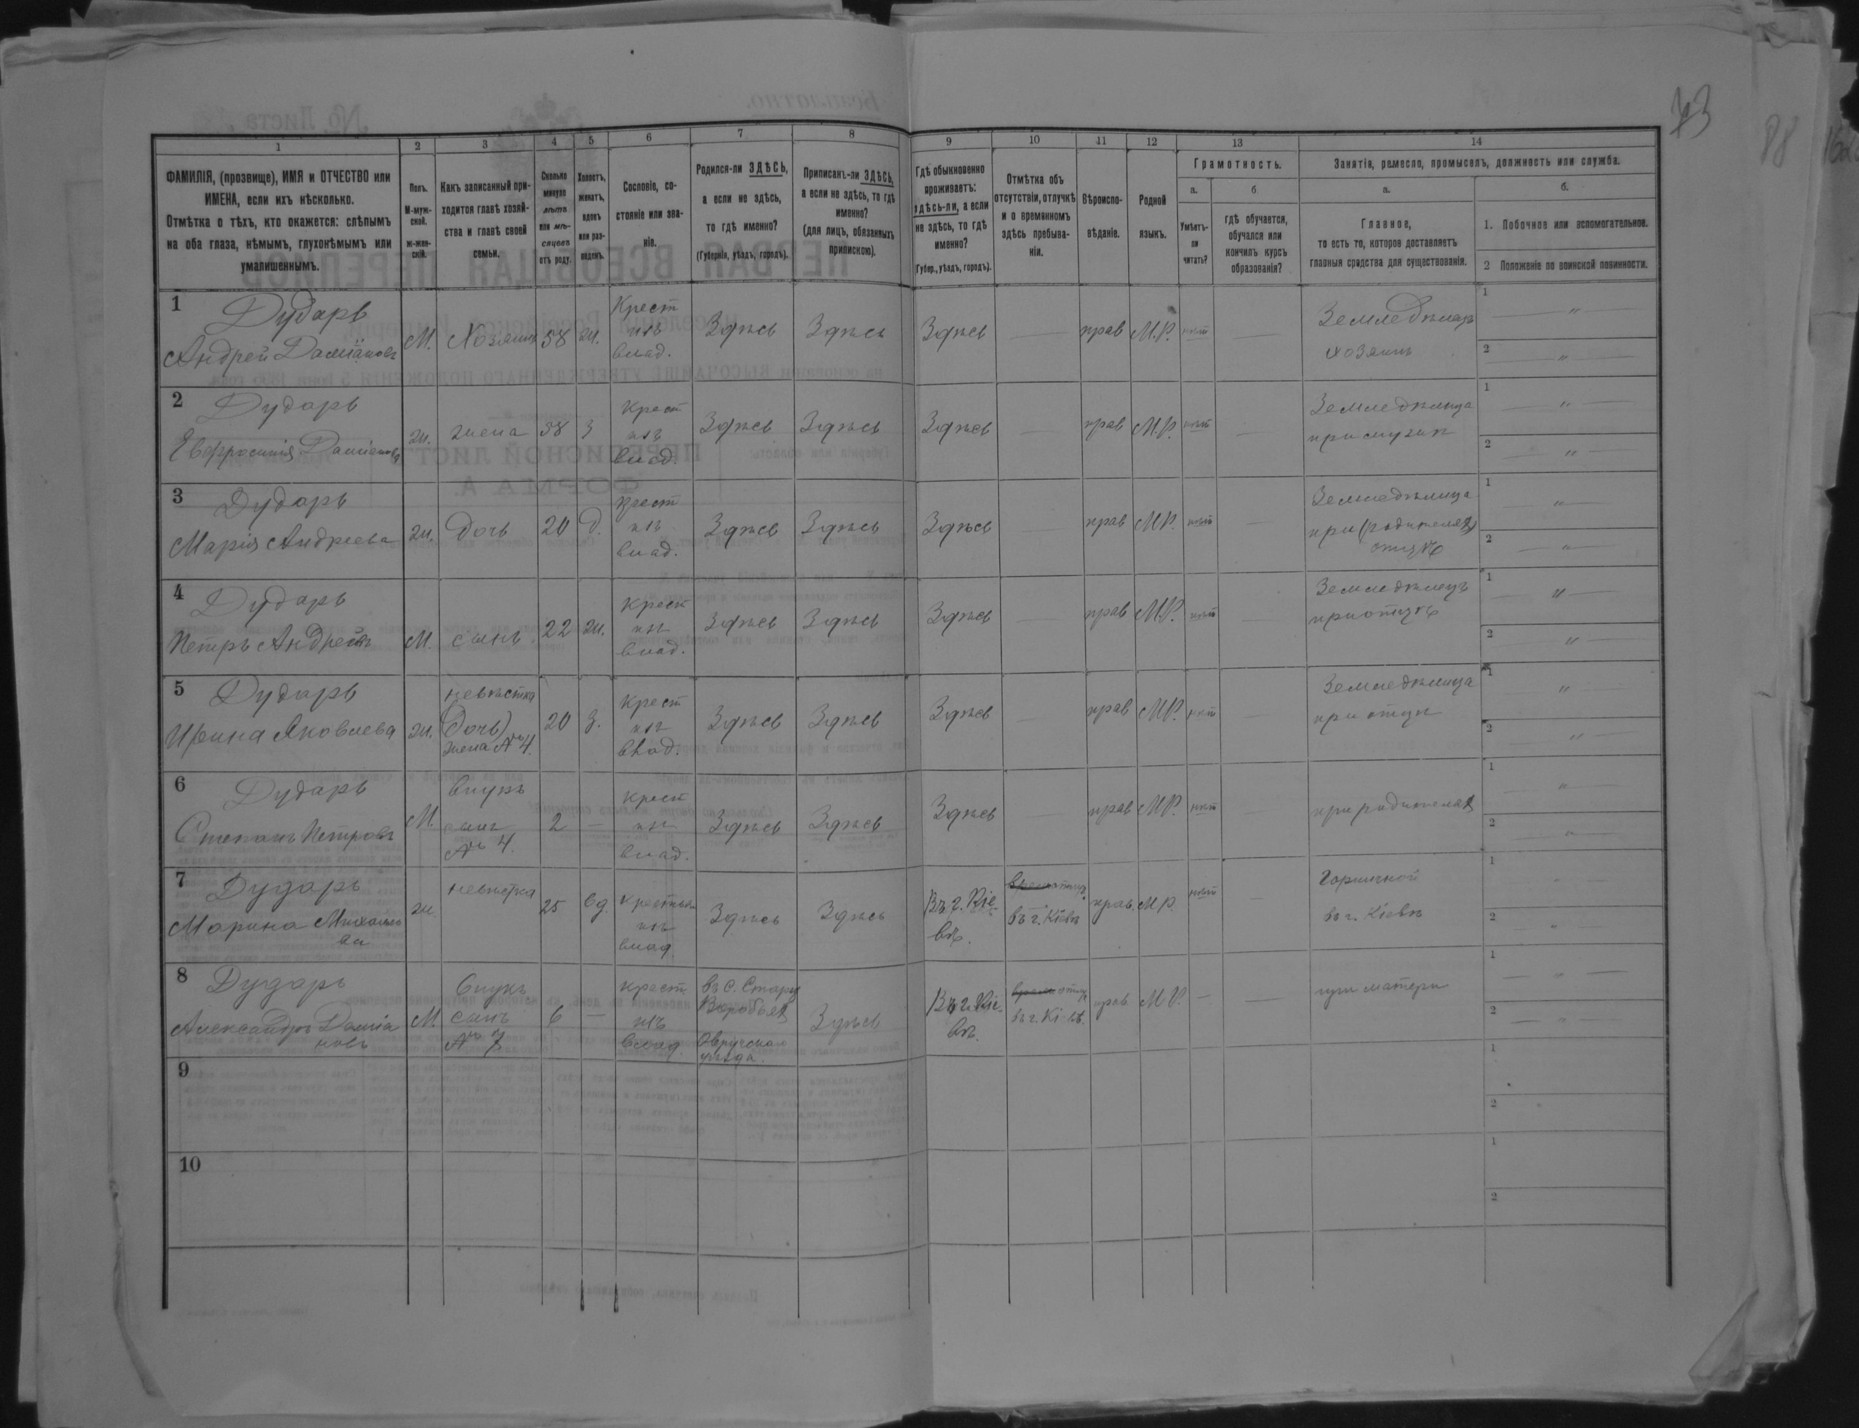 73
88
1 2 3 4 5 6 7 8 9 10 11 12 13 14
ФАМИЛІЯ, (прозвище), ИМЯ и ОТЧЕСТВО или ИМЕНА, если ихъ нѣсколько.
Отмѣтка о тѣхъ, кто окажется: слѣпымъ на оба глаза, нѣмымъ, глухонѣмымъ или умалишеннымъ.
Полъ. М-мужской. Ж-женскій.
Какъ записанный приходится главѣ хозяйства и главѣ своей семьи.
Сколько минуло лѣтъ или мѣсяцевъ отъ роду.
Холостъ, женатъ, вдовъ или разведенъ.
Сословіе, состояніе или званіе.
Родился-ли ЗДѢСЬ, а если не здѣсь, то гдѣ именно?
(Губернія, уѣздъ, городъ).
Приписанъ-ли ЗДѢСЬ, а если не здѣсь, то гдѣ именно?
(для лицъ, обязанныхъ припискою).
Гдѣ обыкновенно проживаетъ: здѣсь-ли, а если не здѣсь, то гдѣ именно?
(Губер., уѣздъ, городъ).
Отмѣтка объ отсутствіи, отлучкѣ и о временномъ здѣсь пребываніи.
Вѣроисповѣданіе.
Родной языкъ.
Грамотность.
а. Умѣетъ-ли читать?
б гдѣ обучается, обучался или кончилъ курсъ образованія?
Занятіе, ремесло, промыселъ, должность или служба.
а. Главное, то есть то, которое доставляетъ главныя средства для существованія.
б.
1. Побочное или вспомогательное.
2 Положеніе по воинской повинности.
1 Дударь Андрей Даміановъ М. Хозяинъ 58 ж. Крест изъ влад. Здѣсь Здѣсь Здѣсь — прав М.Р. нѣт — Земледѣлецъ хозяинъ 1 — " — 2 — " —
2 Дударь Евфросинія ж. жена 58 з Крест изъ влад. Здѣсь Здѣсь Здѣсь — прав М.Р. нѣт — Земледѣлица при мужѣ 1 — " — 2 — " —
3 Дударь Марія Андреева ж. дочь 20 д. Крест изъ влад. Здѣсь Здѣсь Здѣсь — прав М.Р. нѣт — Земледѣлица при (родителях) отцѣ 1 — " — 2 — " —
4 Дударь Петръ М. сынъ 22 ж. Крест изъ влад. Здѣсь Здѣсь Здѣсь — прав М.Р. нѣт — Земледѣлецъ при отцѣ 1 — " — 2 — " —
5 Дударь Ирина Яковлева ж. невѣстка (дочь) жена № 4. 20 з. Крест изъ влад. Здѣсь Здѣсь Здѣсь — прав М.Р. нѣт — Земледѣлица при отцѣ 1 — " — 2 — " —
6 Дударь Степанъ Петровъ М. внукъ сынъ № 4. 2 — Крест изъ влад. Здѣсь Здѣсь Здѣсь — прав М.Р. нѣт — при родителях 1 — " — 2 — " —
7 Дударь Марина ж. невѣстка 25 вд. изъ влад. Здѣсь Здѣсь Въ г. Кіевѣ. въ г. Кіевѣ прав. М.Р. нѣт — Горничной въ г. Кіевѣ 1 — " — 2 — " —
8 Дударь Александръ Даміановъ М. внукъ сынъ № 7 6 — крест изъ влад. въ с. Стары Воробьях Овручскаго уѣзда. Здѣсь Въ г. Кіевѣ. въ г. Кіевѣ. прав М.Р. — — при матери 1 — " — 2 — " —
9 1 2
10 1 2